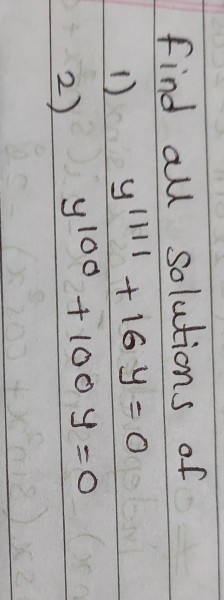 find all solutions of
1) y'''' + 16y = 0
2) y¹⁰⁰ + 100y = 0